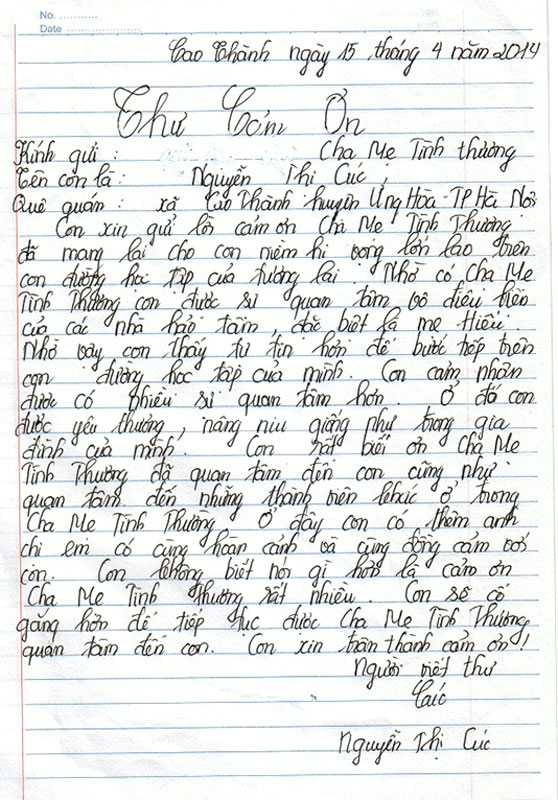 No. ............
Date ..............
Cao Thành ngày 15, tháng 4 năm 2014
Thư Cảm Ơn
Kính gửi : Cha Mẹ Tình thương
Tên con là : Nguyễn Thị Cúc,
Quê quán : xã Cao Thành huyện Ứng Hòa - TP Hà Nội
Con xin gửi lời cảm ơn Cha Mẹ Tình Thương
đã mang lại cho con niềm hi vọng lớn lao trên
con đường học tập của tương lai. Nhờ có Cha Mẹ
Tình Thương con được sự quan tâm vô điều kiện
của các nhà hảo tâm, đặc biệt là mẹ Hiếu.
Nhờ vậy con thấy tự tin hơn để bước tiếp trên
con đường học tập của mình. Con cảm nhận
được có nhiều sự quan tâm hơn. Ở đó con
được yêu thương, nâng niu giống như trong gia
đình của mình. Con rất biết ơn Cha Mẹ
Tình Thương đã quan tâm đến con cũng như
quan tâm đến những thành viên khác ở trong
Cha Mẹ Tình Thương. Ở đây con có thêm anh
chị em có cùng hoàn cảnh và cùng đồng cảm với
con. Con không biết nói gì hơn là cảm ơn
Cha Mẹ Tình thương rất nhiều. Con sẽ cố
gắng hơn để tiếp tục được Cha Mẹ Tình Thương
quan tâm đến con. Con xin trân thành cảm ơn!
Người viết thư
Cúc
Nguyễn Thị Cúc